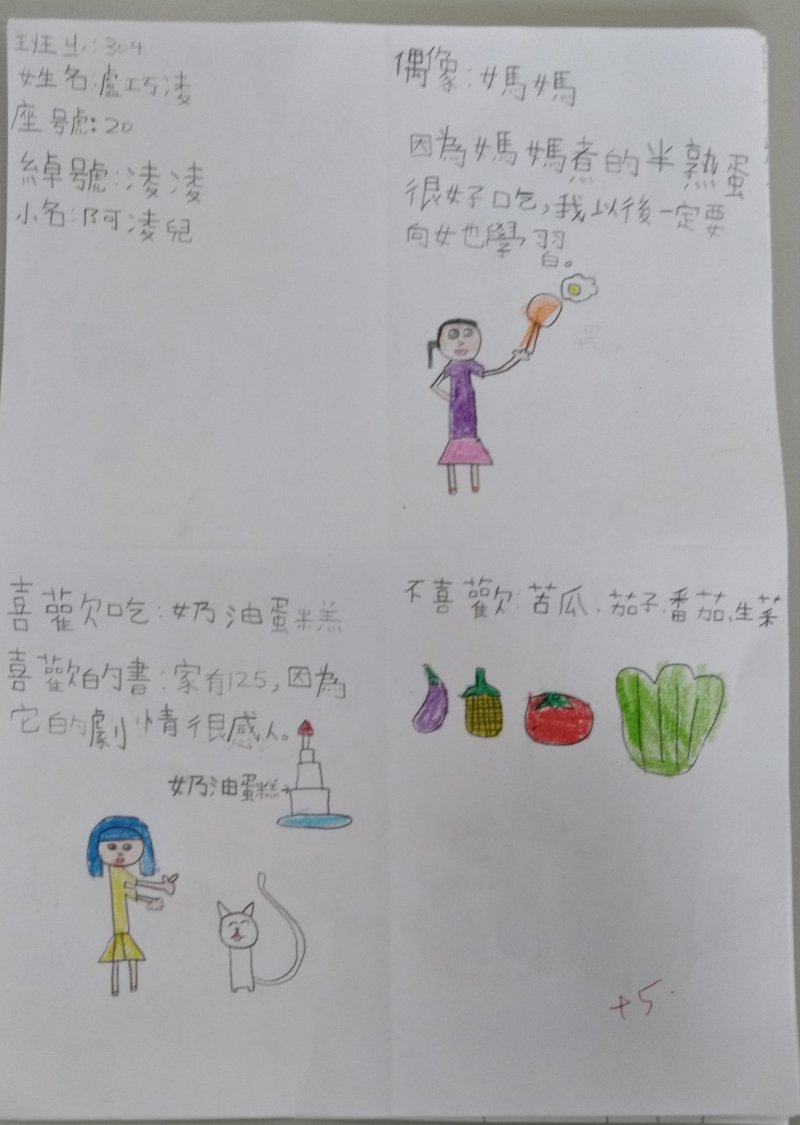 班級:304
姓名:盧巧淩
座號:20
綽號:淩淩
小名:阿淩兒
偶像:媽媽
因為媽媽煮的半熟蛋
很好吃,我以後一定要
向她學習。
喜歡吃:奶油蛋糕
喜歡的書:家有125,因為
它的劇情很感人。
奶油蛋糕→
不喜歡:苦瓜、茄子、番茄、生菜
+5